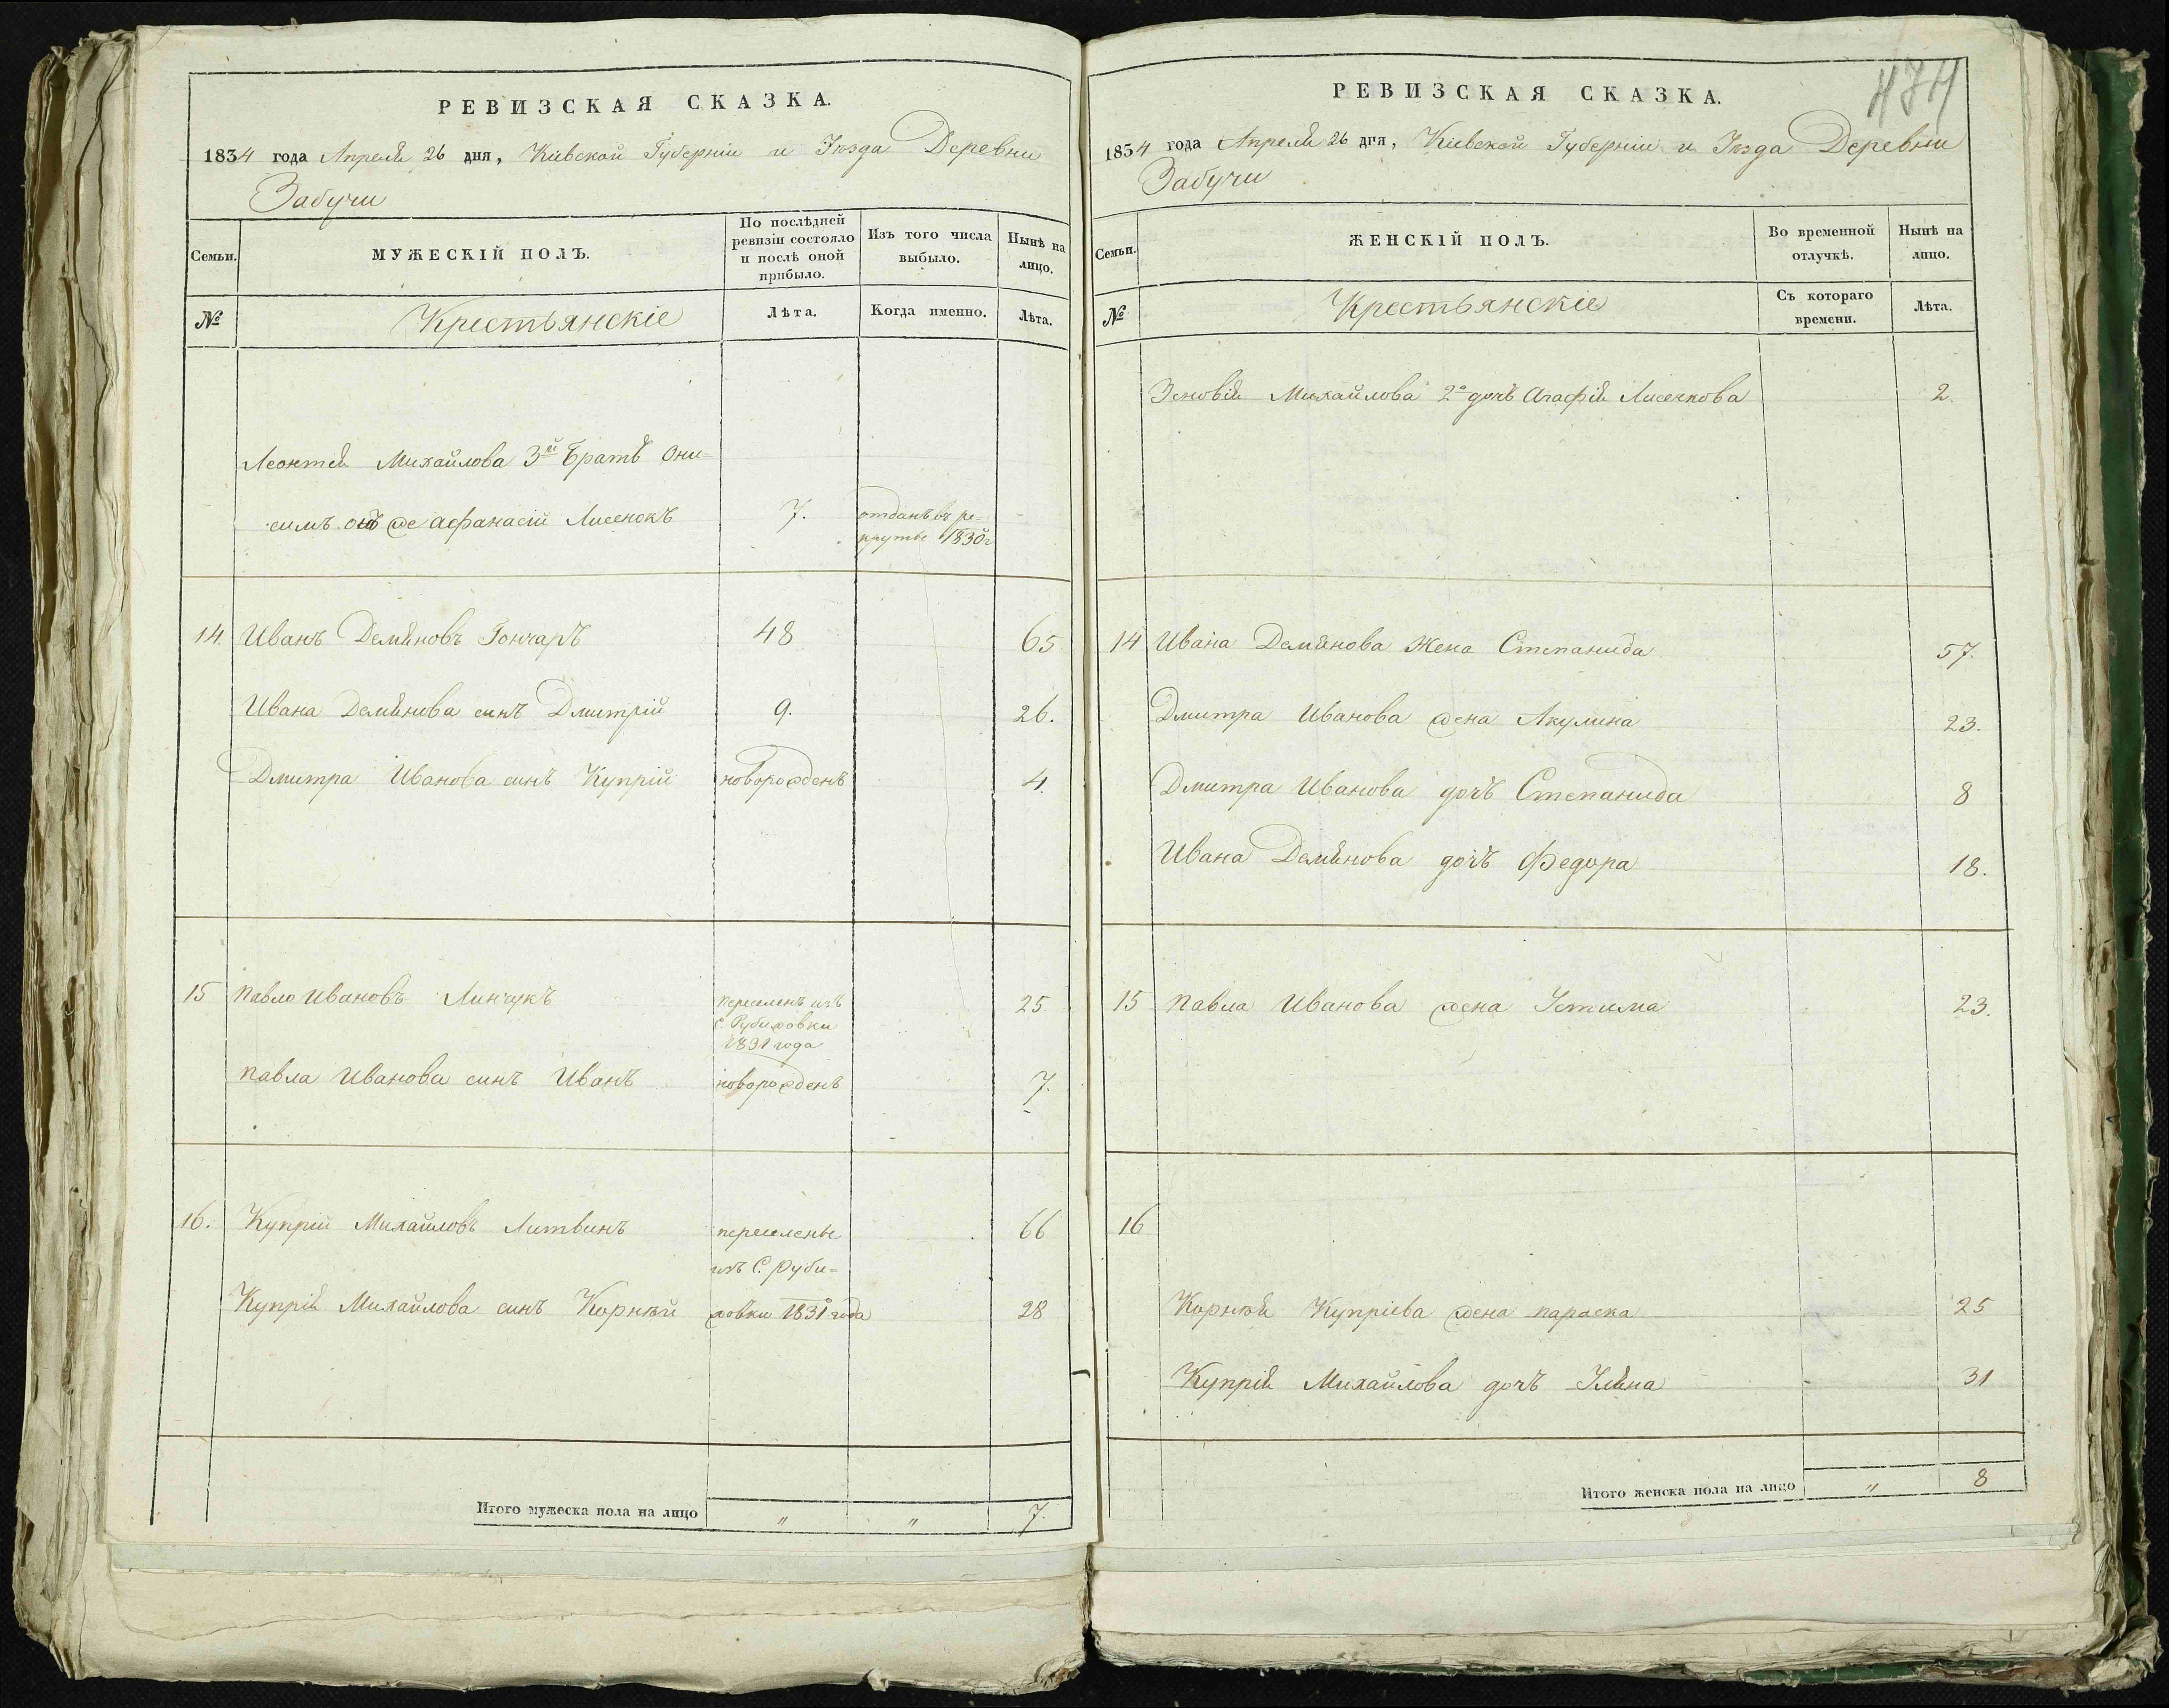 РЕВИЗСКАЯ СКАЗКА.
1834 года Апреля 26 дня, Кіевской Губерніи и Уѣзда Деревни
Забучи
Семьи.
МУЖЕСКІЙ ПОЛЪ.
По послѣдней
ревизіи состояло
и послѣ оной
прибыло.
Изъ того числа
выбыло.
Нынѣ на
лицо.
№
Крестьянскіе
Лѣта.
Когда именно.
Лѣта.
Леонтія Михайлова 3й Братъ Они=
симъ онъ же Афанасій Лисенокъ 7. отданъ въ ре=
круты 1830г
14. Иванъ Демяновъ Гончаръ 48 65
Ивана Демянова синъ Дмитрій 9. 26.
Дмитра Иванова синъ Купрій новорожденъ 4.
15 Павло Ивановъ Линчукъ переселенъ изъ 25
с. Рубижовки
1831 года
Павла Иванова синъ Иванъ новорожденъ 7.
16. Купрій Михайловъ Литвинъ переселены 66
изъ С. Руби=
Купрія Михайлова синъ Корнѣй жовки 1831 года 28
Итого мужеска пола на лицо " " 7.
474
РЕВИЗСКАЯ СКАЗКА.
1834 года Апреля 26 дня, Кіевской Губерніи и Уѣзда Деревни
Забучи
Семьи.
ЖЕНСКІЙ ПОЛЪ.
Во временной
отлучкѣ.
Нынѣ на
лицо.
№
Крестьянскіе
Съ котораго
времени.
Лѣта.
Зеновія Михайлова 2я дочъ Агафія Лисенкова 2.
14 Ивана Демянова Жена Степанида 57.
Дмитра Иванова жена Акулина 23.
Дмитра Иванова дочъ Степанида 8
Ивана Демянова дочъ Федора 18.
15 Павла Иванова жена Устима 23.
16
Корнѣя Купріева жена Параска 25
Купрія Михайлова дочъ Уляна 31
Итого женска пола на лицо " 8